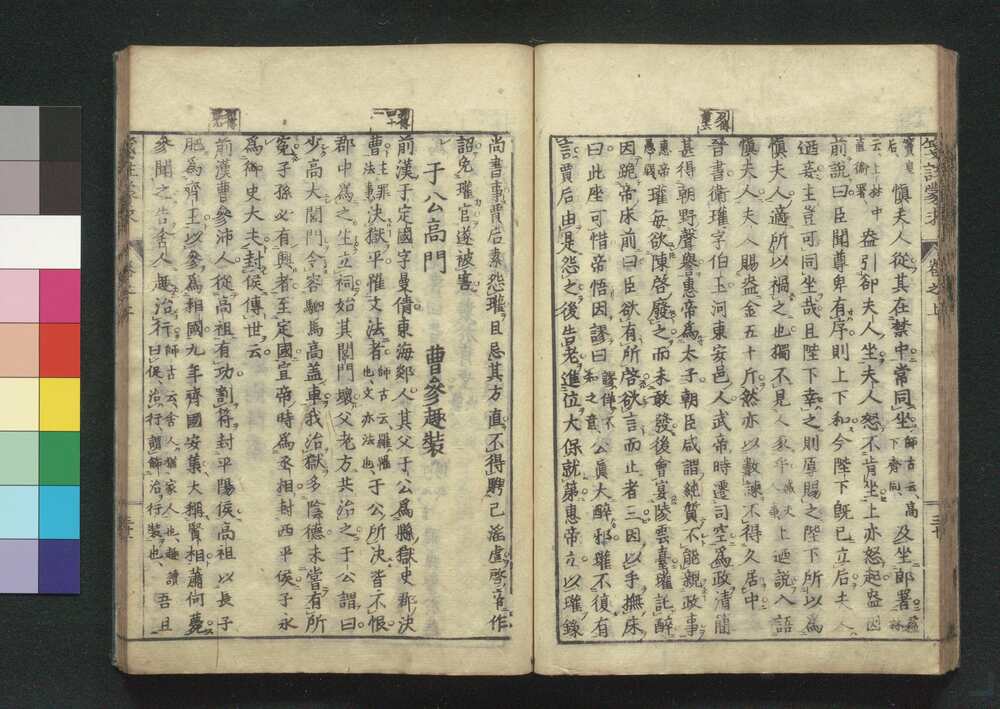 慎夫人從其在禁中常同坐 師古云、 及坐郎署
盎引卻夫人坐夫人怒不肯坐上亦怒起盎因
前說曰臣聞尊卑有序則上下和今陛下既已立后夫人
迺妾主豈可同坐哉且陛下幸之則厚賜之陛下所以為
慎夫人適所以禍之也獨不見人豕乎 上迺說入語
慎夫人夫人賜盎金五十斤然亦以數諫不得久居中
晉書衛瓘字伯玉河東安邑人武帝時遷司空為政清簡
甚得朝野聲譽惠帝為太子朝臣咸謂純質不能親政事
瓘每欲陳啓廢之而未敢發後會宴陵雲臺瓘託醉
因跪帝床前曰臣欲有所啓欲言而止者三因以手撫床
曰此座可惜帝悟因謬曰 公眞大醉邪瓘不復有
言賈后由是怨之後告老進位大保就第惠帝立以瓘錄
尚書事賈后素怨瓘且忌其方直不得騁己淫虐啓帝作
詔免瓘官遂被害
于公高門 曹參趣裝
前漢于定國字曼倩東海郯人其父于公為縣獄史郡決
曹決獄平羅文法者 師古云羅罹也、文亦法也、 于公所決皆不恨
郡中為之生立祠始其閭門壞父老方共治之于公謂曰
少高大閭門令容駟馬高蓋車我治獄多陰德未嘗有所
冤子孫必有興者至定國宣帝時為丞相封西平侯子永
為御史大夫封侯傳世云
前漢曹參沛人從高祖有功剖符封平陽侯高祖以長子
肥為齊王以參為相國九年齊國安集大稱賢相蕭何薨
參聞之告舍人趣治行 師古云舍人猶家人也、趣讀曰促、治行謂飾治行裝也、 吾且